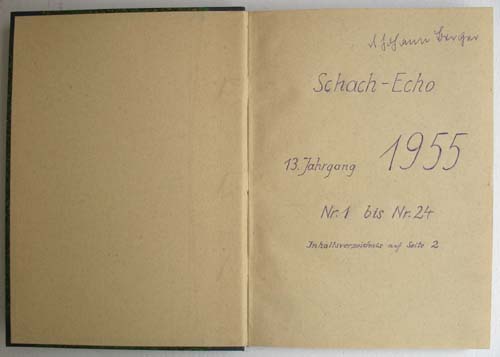 Johann Berger
Schach-Echo
13. Jahrgang 1955
Nr. 1 bis Nr. 24
Inhaltsverzeichnis auf Seite 2